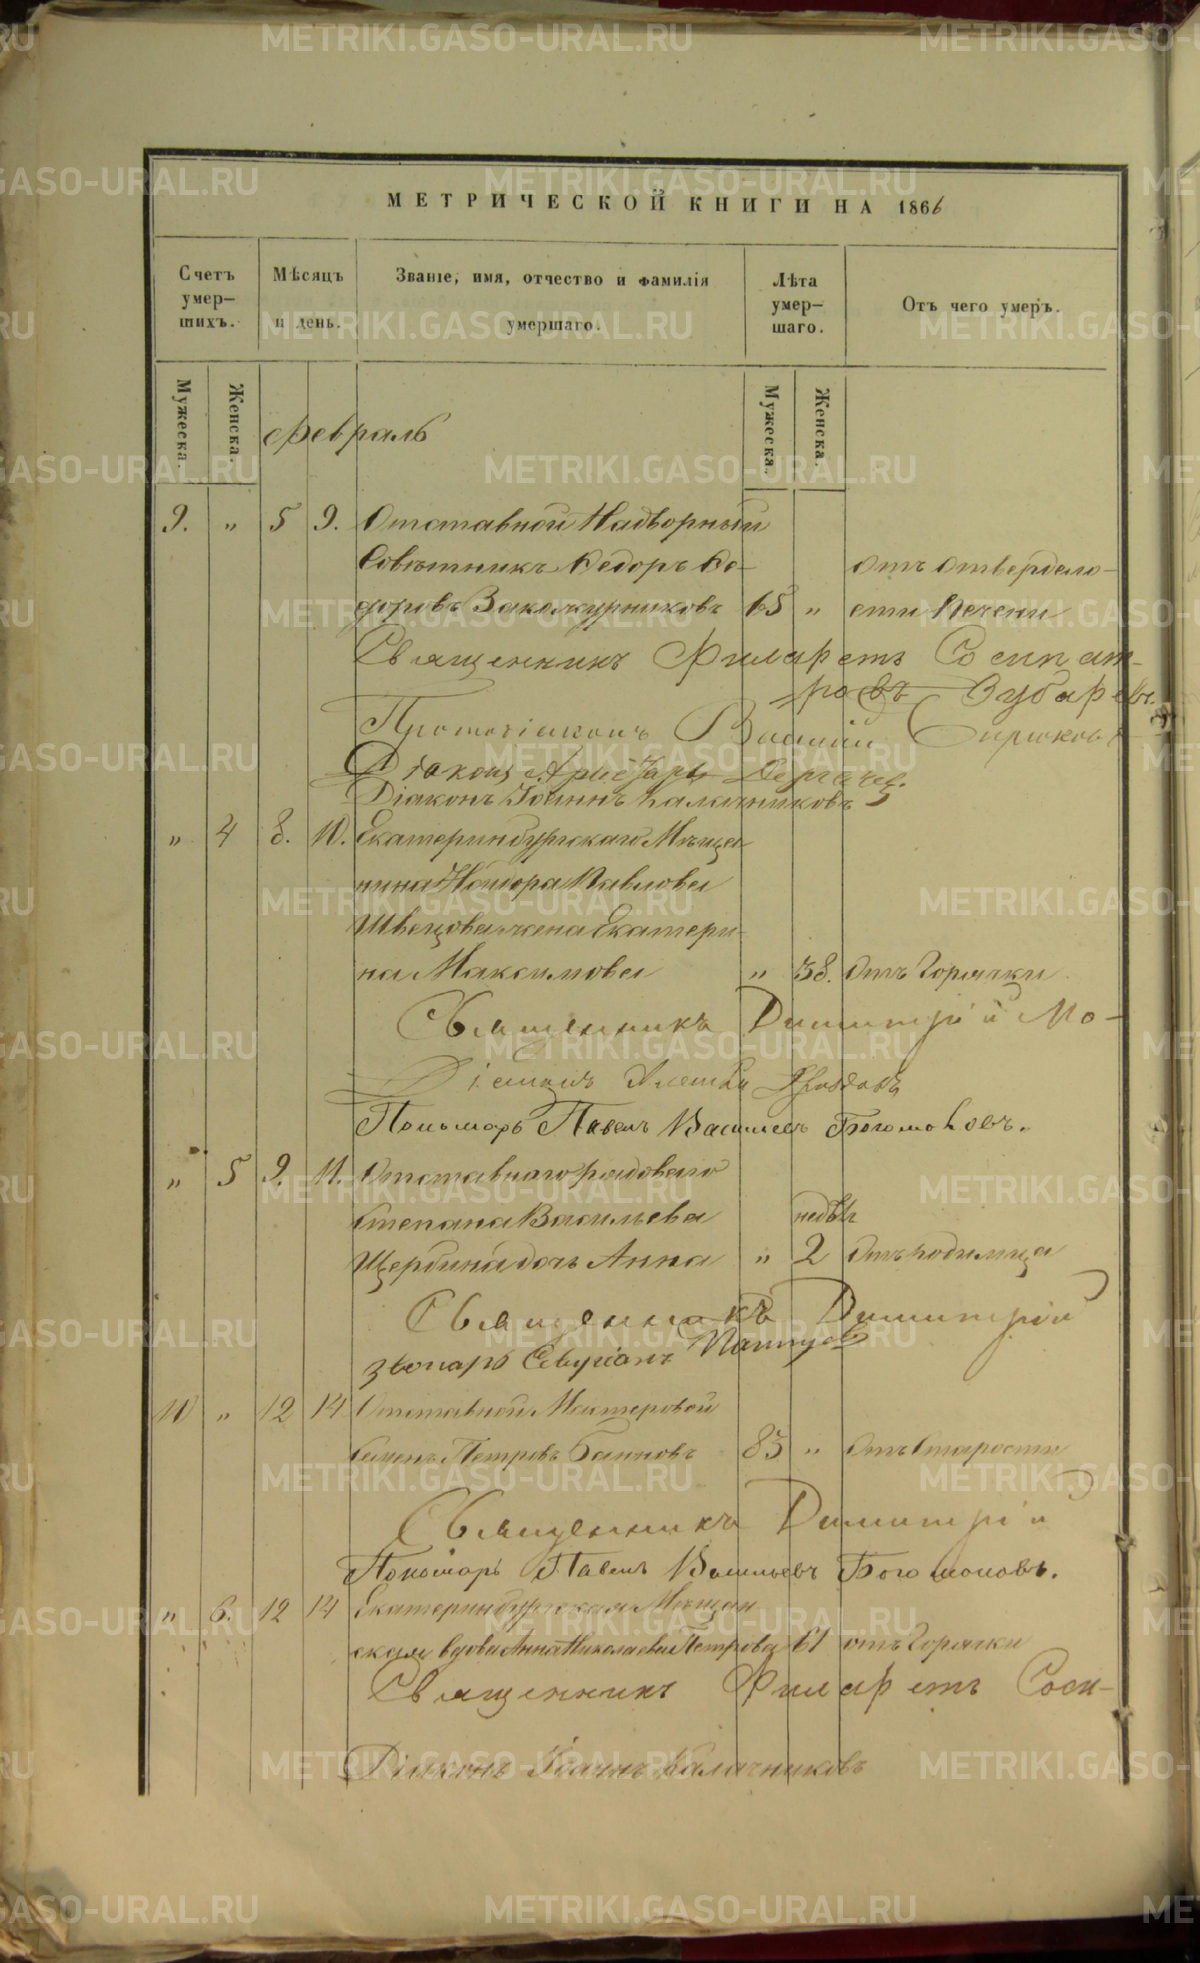 МЕТРИЧЕСКОЙ КНИГИ НА 1866
Счетъ умер-шихъ.
Мѣсяцъ и день.
Званіе, имя, отчество и фамилія умершаго.
Лѣта умер-шаго.
Отъ чего умеръ.
Мужеска. Женска. Мужеска. Женска.
Февраль
9. " 5 9. Отставной Надворный
Совѣтникъ Ѳедоръ Ѳе- отъ отвердело-
доровъ Закожурниковъ 65 " сти Печени
Священникъ Филаретъ Сосипат-
ровъ Зубаревъ.
Протодіаконъ Василій Бирюковъ
Діаконъ Аристархъ Дергачев.
Діаконъ Іоаннъ Калачниковъ
" 4 8. 10. Екатеринбургскаго Мѣща
нина Павлова
Швецова жена Екатери-
на Максимова " 38. Отъ Горячки
Священникъ Димитрій Мо-
Діаконъ
Пономарь Павелъ Васильевъ Богомоловъ.
" 5 9. 11. Отставнаго рядоваго
Степана Васильева недѣл
Щербина дочь Анна " 2 Отъ родимца
Священникъ Димитрій
звонарь
10 " 12 14 Отставной Мастеровой
Семенъ Петровъ Баиновъ 83 " Отъ Старости
Священникъ Димитрій
Пономарь Павелъ Васильевъ Богомоловъ.
" 6. 12 14 Екатеринбургская Мѣщан
ская вдова Анна Николаева Петрова 61 отъ Горячки
Священникъ Филаретъ Соси-
Діаконъ Іоаннъ Калачниковъ
METRIKI.GASO-URAL.RU